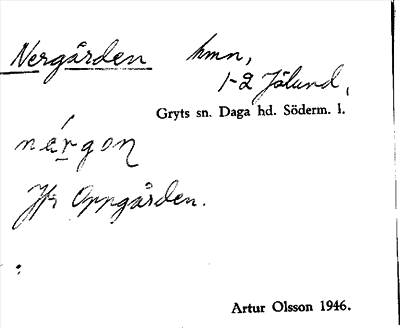 Nergården hmn,
1-2 Jälund,
Gryts sn. Daga hd. Söderm. l.
nérgon
Jfr Oppgården.
Artur Olsson 1946.